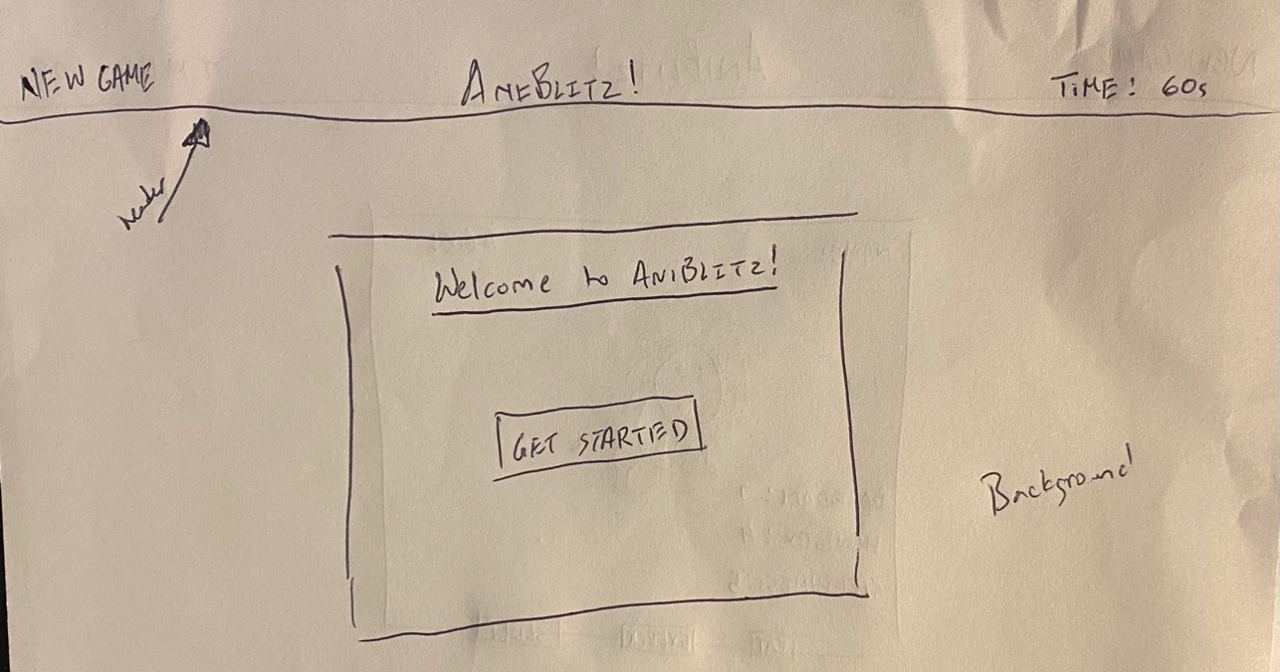 NEW GAME
ANIBLITZ!
TIME: 60s
header
Welcome to ANIBLITZ!
GET STARTED
Background